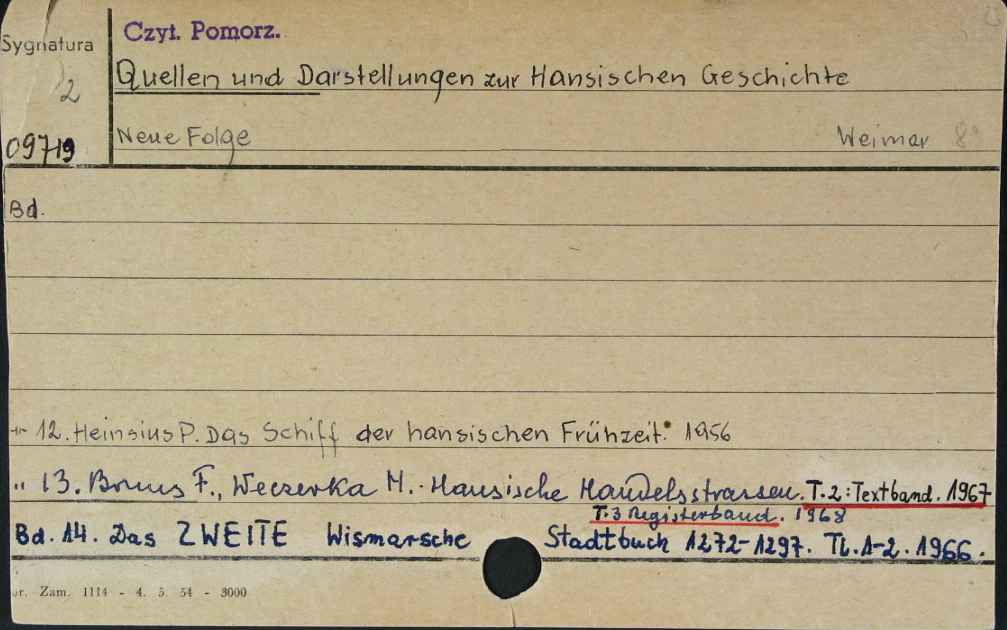 Czyt. Pomorz.
Sygnatura
Quellen und Darstellungen zur Hansischen Geschichte
2
Neue Folge Weimar
09719
Bd.
-"- 12. Heinsius P. Das Schiff der hansischen Frühzeit. 1956
" 13. Bruns F., Weczerka H. Hansische Handelsstrassen. T.2: Textband. 1967
T.3 Registerband. 1968
Bd. 14. Das ZWEITE Wismarsche Stadtbuch 1272-1297. Tl. 1-2. 1966.
r. Zam. 1114 - 4. 5. 54 - 3000